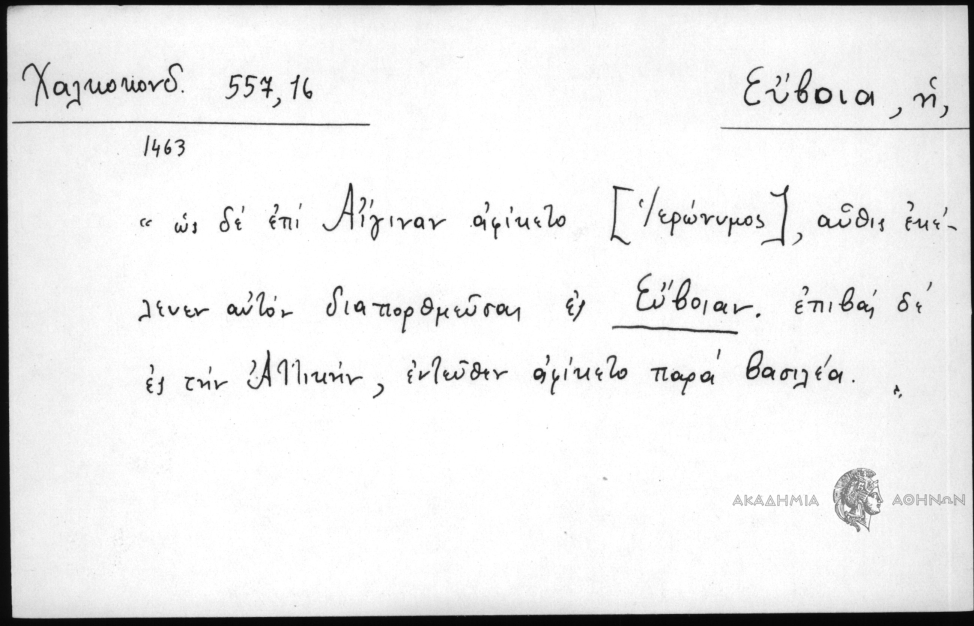 Χαλκοκονδ. 557,16
Εὔβοια, ἡ,
1463
“ ὡς δέ ἐπί Αἴγιναν ἀφίκετο [Ἱερώνυμος], αὖθις ἐκέ-
λευεν αὐτόν διαπορθμεῦσαι ἐς Εὔβοιαν. ἐπιβάς δέ
ἐς τήν Ἀττικήν, ἐντεῦθεν ἀφίκετο παρά βασιλέα. „
ΑΚΑΔΗΜΙΑ ΑΘΗΝΩΝ